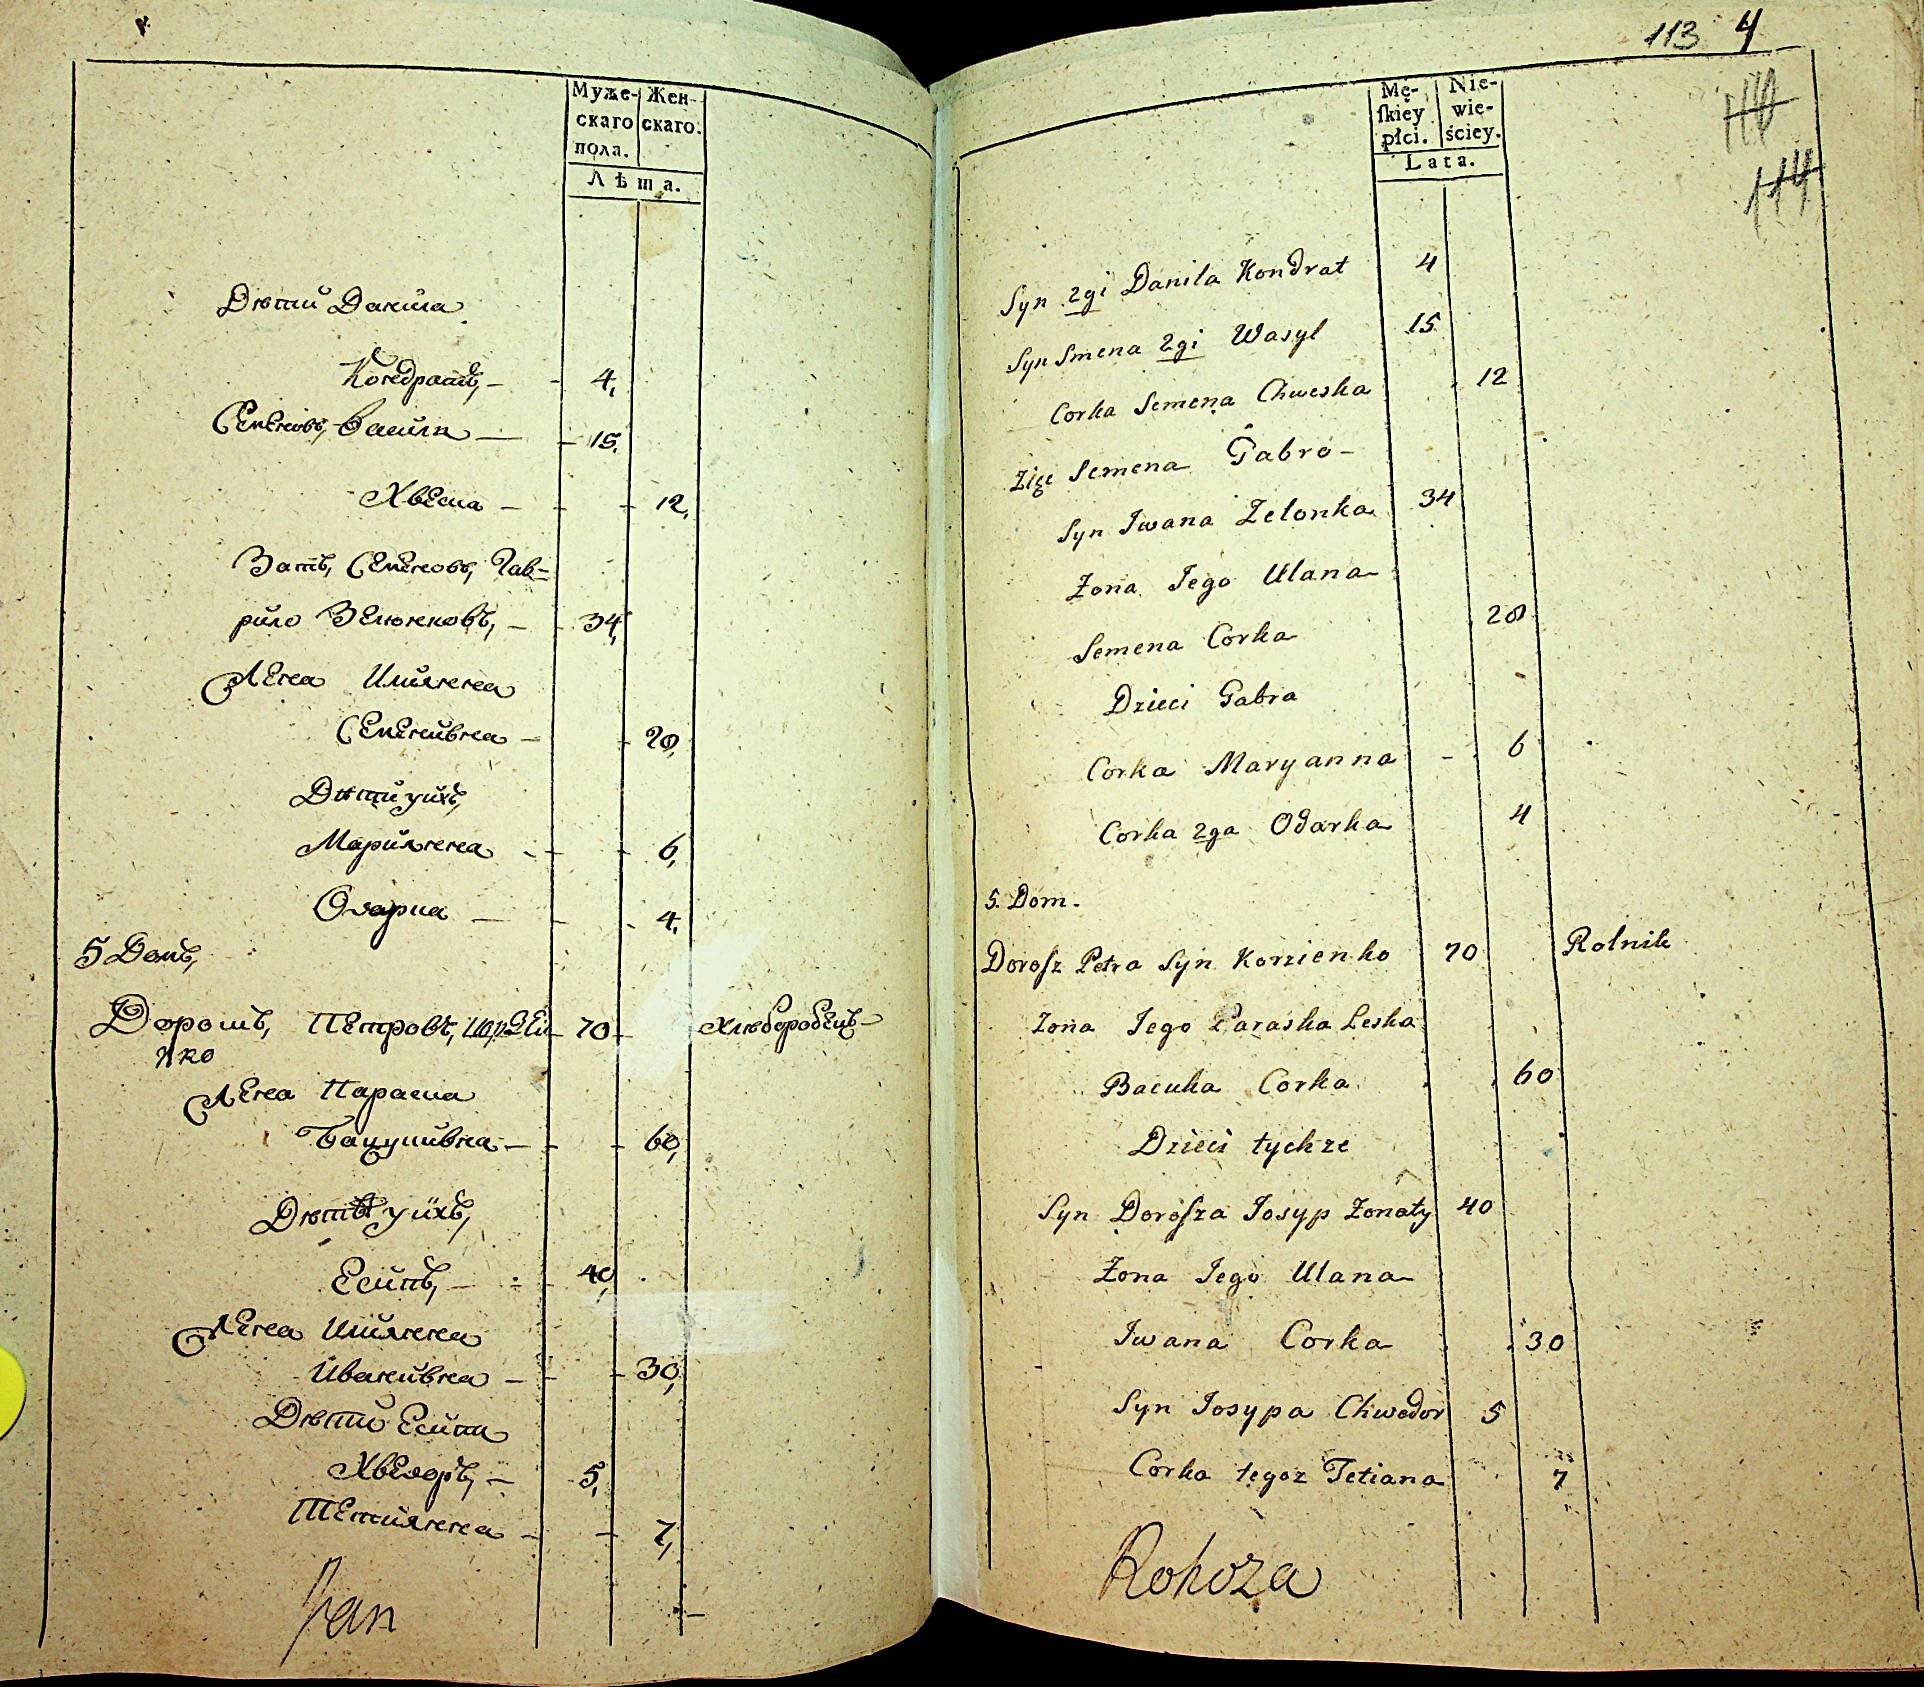 Муже-
скаго
пола.
Жен-
скаго.
Лѣта.
Дѣти Данила
Кондратъ, — 4,
Семеновъ, Василь — 15,
Хвеска — 12,
Зять, Семеновъ, Гав=
рило Зелюковъ, — 34,
Жена Уляяна
Семенивна — 20,
Дѣти уихъ,
Марияна — 6,
Одарка — 4.
5 Домъ,
Дорошъ, Петровъ, Корзѣй 70 Хлеборобецъ —
нко
Жена Параска
Бацукивна — 60,
Дѣти уихъ,
Есипъ, — 40,
Жена Уляяна
Иванивна — 30,
Дѣти Есипа
Хведоръ, — 5,
Тетияна — 7,
Jan
113 4
110
114
Mę-
skiey
płci.
Nie-
wie-
ściey.
Lata.
Syn 2gi Danila Kondrat 4
Syn Smena 2gi Wasyl 15
Corka Semena Chweska 12
Zięc Semena Gabro-
Syn Iwana Zelonka 34
Zona Jego Ulana
Semena Corka 20
Dzieci Gabra
Corka Maryanna - 6
Corka 2ga Odarka 4
5. Dom.
Dorosz Petra Syn Korzienko 70 Rolnik
Zona Jego Paraska Leska
Bacuka Corka 60
Dzieci tychze
Syn Dorosza Josyp Zonaty 40
Zona Jego Ulana
Iwana Corka 30
Syn Josypa Chwedor 5
Corka tegoz Tetiana 7
Rohoza